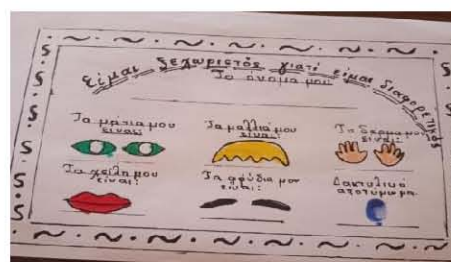 Είμαι ξεχωριστός γιατί είμαι διαφορετικός
Το όνομα μου
Τα μάτια μου είναι:
Τα μαλλιά μου είναι:
Το δέρμα μου είναι:
Τα χείλη μου είναι:
Τα φρύδια μου είναι:
Δακτυλικό αποτύπωμα